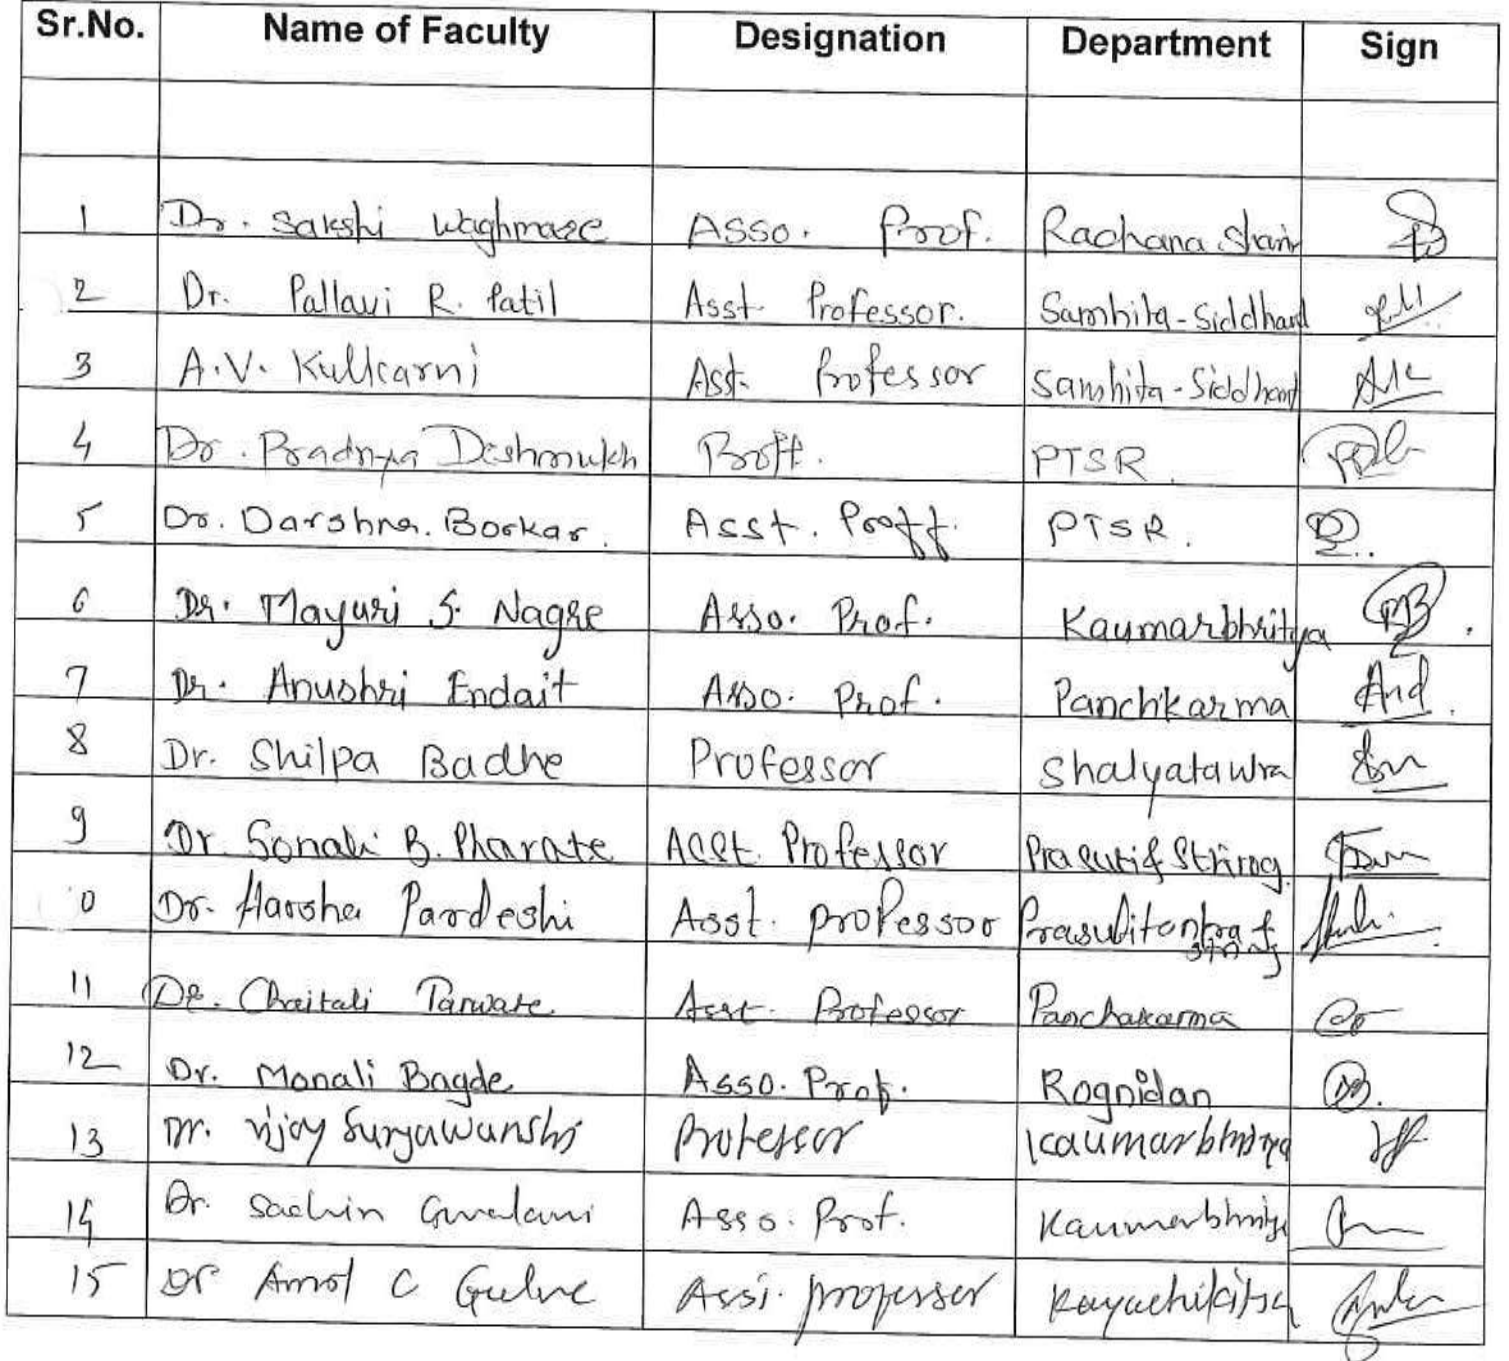 Sr.No. Name of Faculty Designation Department Sign
1 Dr. Sakshi Waghmare Asso. Prof. Rachana Sharir
2 Dr. Pallavi R. Patil Asst. Professor. Samhita-Siddhant
3 A.V. Kulkarni Asst. Professor Samhita-Siddhant
4 Dr. Pradnya Deshmukh Proff. PTSR
5 Dr. Darshna. Borkar. Asst. Proff. PTSR.
6 Dr. Mayuri S. Nagre Asso. Prof. Kaumarbhritya
7 Dr. Anushri Endait Asso. Prof. Panchkarma
8 Dr. Shilpa Badhe Professor Shalyatawra
9 Dr. Sonali B. Pharate Asst. Professor Prasuti & Strirog.
0 Dr. Harsha Pardeshi Asst. professor Prasutitantra &
11 Dr. Chaitali Tarwate Asst. Professor Panchakarma
12 Dr. Monali Bagde Asso. Prof. Rognidan
13 Dr. Vijay Suryawanshi Professor Kaumarbhritya
14 Dr. Sachin Gwalani Asso. Prof. Kaumarbhritya
15 Dr Amol C Gulve Assi. professor Kayachikitsa